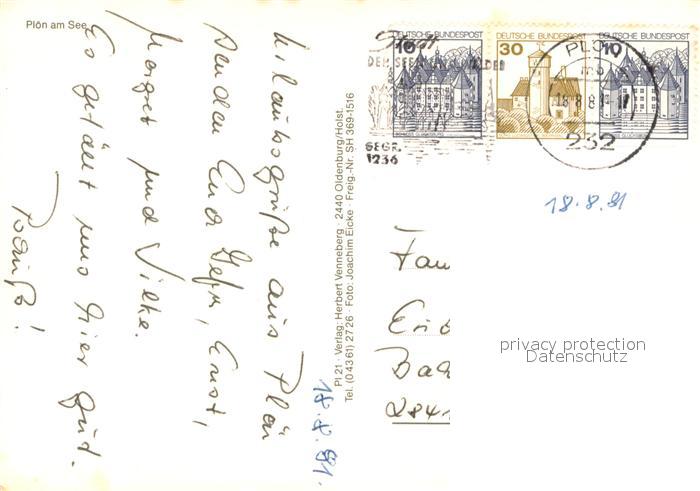 Plön am See
Urlaubsgrüße aus Plön
senden Euch Gefr, Ernst,
Margret und Silke.
Es gefällt uns hier gut.
Tschüß!
18.8.81.
Pl 21 · Verlag: Herbert Venneberg · 2440 Oldenburg/Holst.
Tel. (0 43 61) 27 26 · Foto: Joachim Eicke · Freig.-Nr. SH 369-1516
DEUTSCHE BUNDESPOST
10
DEUTSCHE BUNDESPOST
30
DEUTSCHE BUNDESPOST
10
Stadt
DER SEEN
SEGR.
1236
PLÖN
18.8.81
232
18.8.81
Fam
Eri
Bad
2841
privacy protection
Datenschutz